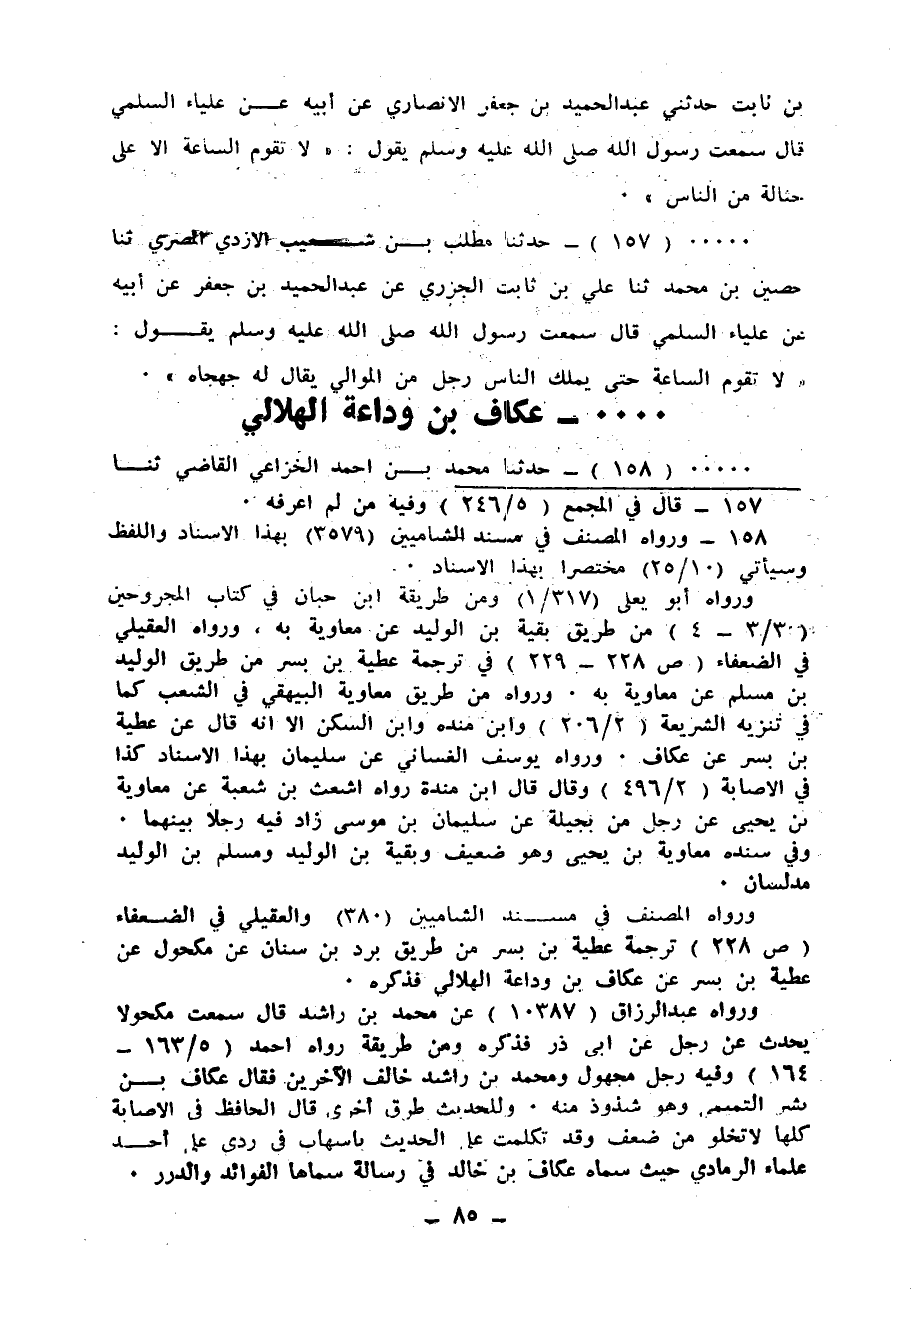 بن ثابت حدثني عبدالحميد بن جعفر الانصاري عن أبيه عــن علباء السلمي
قال سمعت رسول الله صلى الله عليه وسلم يقول : « لا تقوم الساعة الا على
حثالة من الناس » ٠
٠٠٠٠٠ ( ١٥٧ ) ــ حدثنا مطلب بــن شــعيب الازدي المصري ثنا
حصين بن محمد ثنا علي بن ثابت الجزري عن عبدالحميد بن جعفر عن أبيه
عن علباء السلمي قال سمعت رسول الله صلى الله عليه وسلم يقــول :
« لا تقوم الساعة حتى يملك الناس رجل من الموالي يقال له جهجاه » ٠
٠٠٠٠ ــ عكاف بن وداعة الهلالي
٠٠٠٠٠ ( ١٥٨ ) ــ حدثنا محمد بــن احمد الخزاعي القاضي ثنــا
١٥٧ ــ قال في المجمع ( ٢٤٦/٥ ) وفيه من لم اعرفه ٠
١٥٨ ــ ورواه المصنف في مسند الشاميين (٣٥٧٩) بهذا الاسناد واللفظ
وسيأتي (٢٥/١٠) مختصرا بهذا الاسناد ٠
ورواه أبو يعلى (١/٣١٧) ومن طريقة ابن حبان في كتاب المجروحين
(٣/٣٠ ــ ٤ ) من طريق بقية بن الوليد عن معاوية به ، ورواه العقيلي
في الضعفاء ( ص ٢٢٨ ــ ٢٢٩ ) في ترجمة عطية بن بسر من طريق الوليد
بن مسلم عن معاوية به ٠ ورواه من طريق معاوية البيهقي في الشعب كما
في تنزيه الشريعة ( ٢٠٦/٢ ) وابن منده وابن السكن الا انه قال عن عطية
بن بسر عن عكاف ٠ ورواه يوسف الغساني عن سليمان بهذا الاسناد كذا
في الاصابة ( ٤٩٦/٢ ) وقال قال ابن مندة رواه اشعث بن شعبة عن معاوية
بن يحيى عن رجل من بجيلة عن سليمان بن موسى زاد فيه رجلا بينهما ٠
وفي سنده معاوية بن يحيى وهو ضعيف وبقية بن الوليد ومسلم بن الوليد
مدلسان ٠
ورواه المصنف في مســند الشاميين (٣٨٠) والعقيلي في الضعفاء
( ص ٢٢٨ ) ترجمة عطية بن بسر من طريق برد بن سنان عن مكحول عن
عطية بن بسر عن عكاف بن وداعة الهلالي فذكره ٠
ورواه عبدالرزاق ( ١٠٣٨٧ ) عن محمد بن راشد قال سمعت مكحولا
يحدث عن رجل عن ابى ذر فذكره ومن طريقة رواه احمد ( ١٦٣/٥ ــ
١٦٤ ) وفيه رجل مجهول ومحمد بن راشد خالف الآخرين فقال عكاف بــن
بشر التميمي وهو شذوذ منه ٠ وللحديث طرق أخرى قال الحافظ في الاصابة
كلها لاتخلو من ضعف وقد تكلمت على الحديث باسهاب في ردي على أحــد
علماء الرمادي حيث سماه عكاف بن خالد في رسالة سماها الفوائد والدرر ٠
ــ ٨٥ ــ